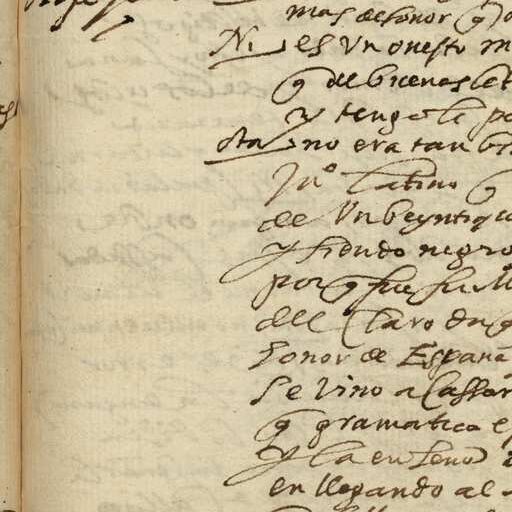 mas desonor q
Ni es Vn onesto m
q de buenas let
y tengole po
ota no era tan br
Juº Latino q
de Vn beyntiqu
y siendo negro
por q fue su M
del Claro duq
honor de España
se vino a Cassar
q gramatica
y la enseno
en llegando al